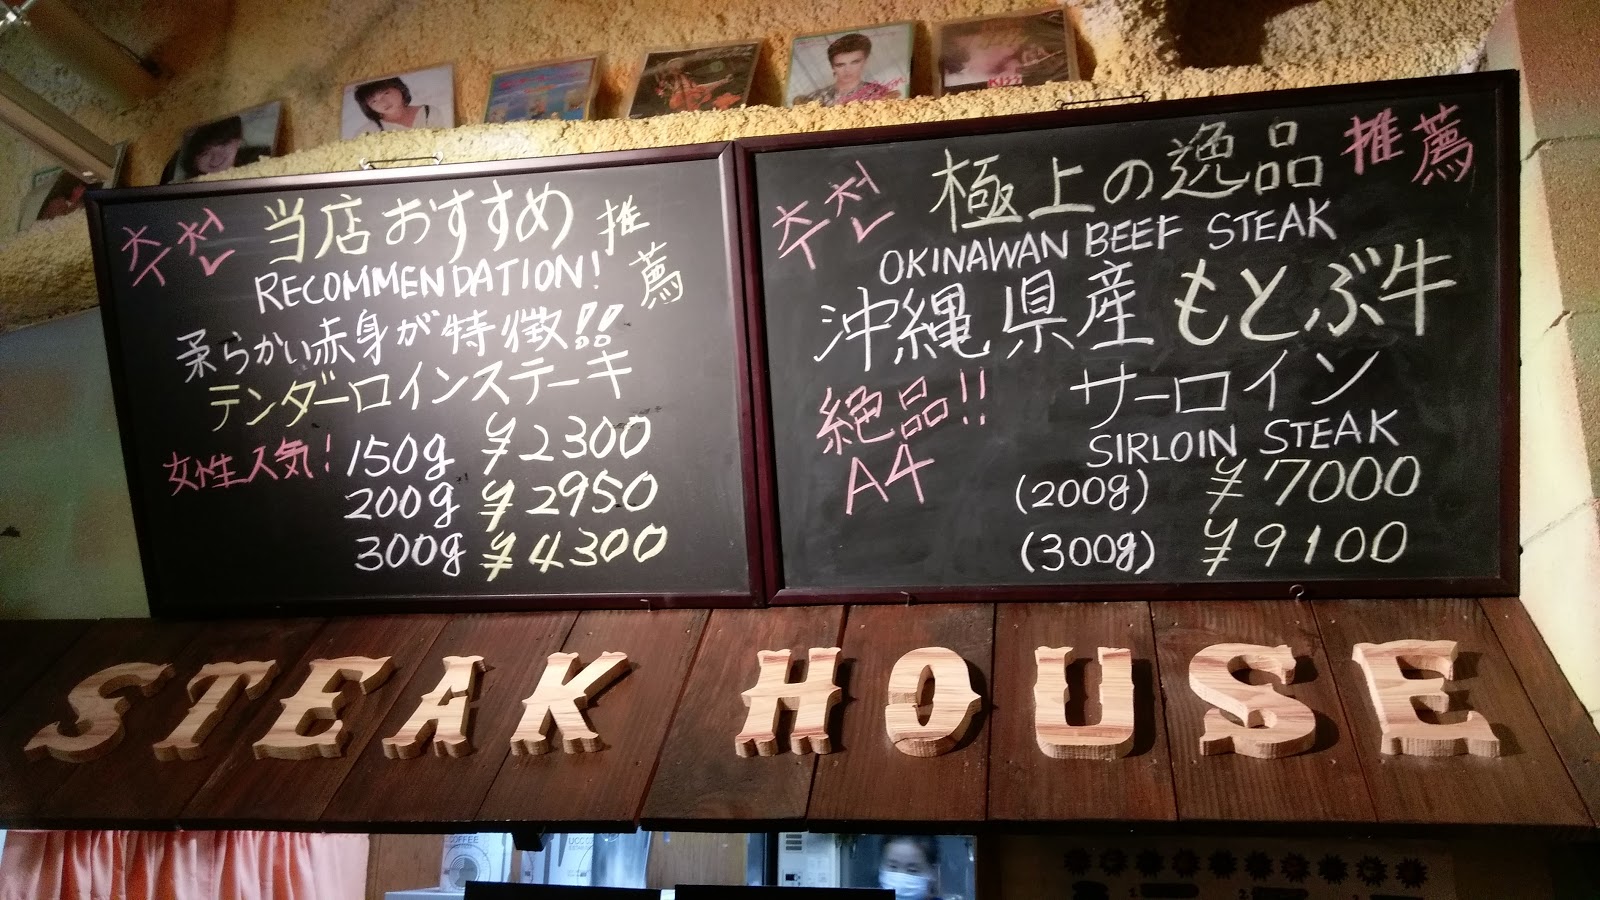 추천 当店おすすめ 推薦
RECOMMENDATION!
柔らかい赤身が特徴!!
テンダーロインステーキ
女性人気! 150g ¥2300
200g ¥2950
300g ¥4300
추천 極上の逸品 推薦
OKINAWAN BEEF STEAK
沖縄県産 もとぶ牛
絶品!! サーロイン
A4 SIRLOIN STEAK
(200g) ¥7000
(300g) ¥9100
STEAK HOUSE
KISS
COFFEE
UCC